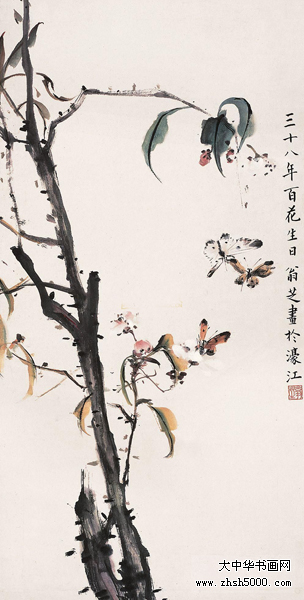 三十八年百花生日翁芝畫於濠江
大中华书画网
www.zhsh5000.com